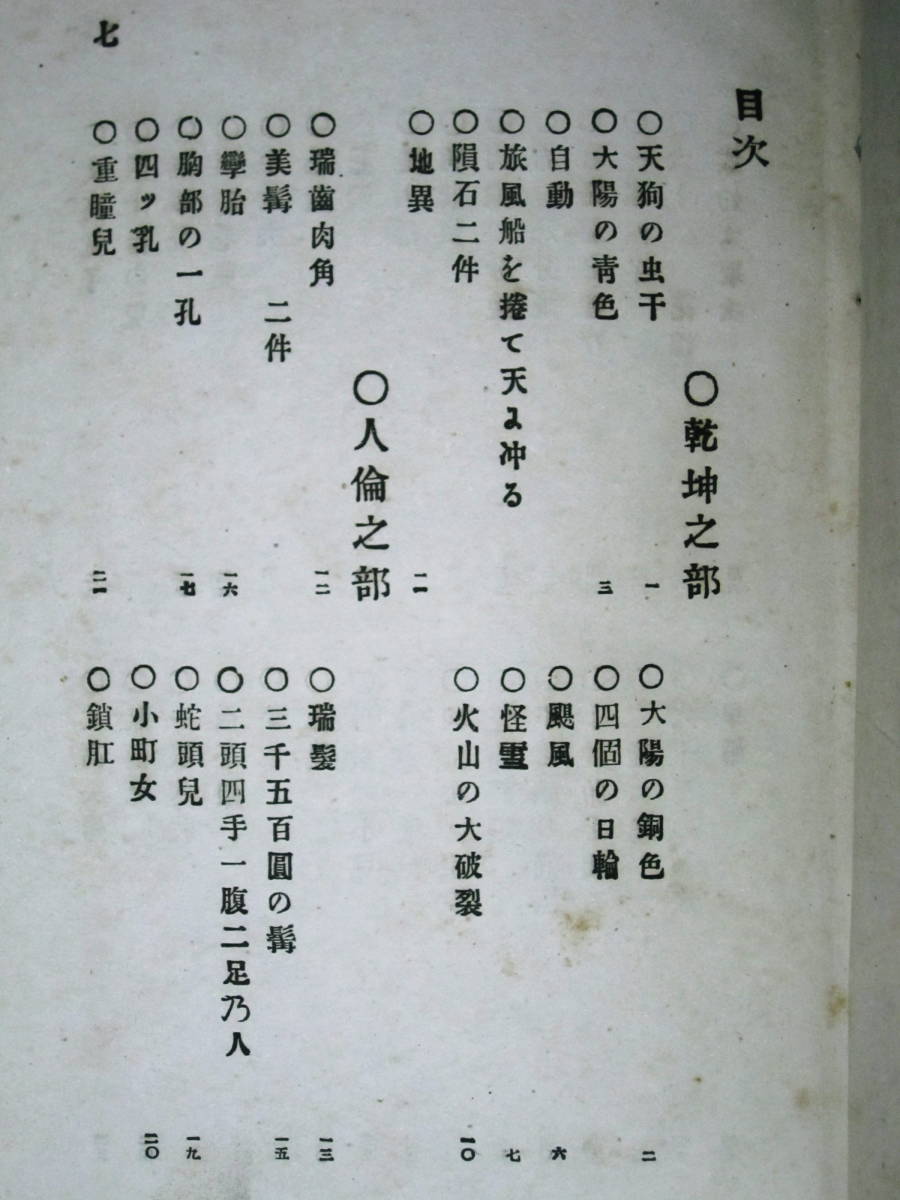 目次
〇乾坤之部
〇天狗の虫干 一
〇大陽の銅色 二
〇大陽の青色 三
〇四個の日輪
〇自動
〇颶風 六
〇旅風船を捲て天に冲る
〇怪 七
〇隕石二件
〇火山の大破裂 一〇
〇地異 一一
〇人倫之部
〇瑞齒肉角 一二
〇瑞髮 一三
〇美髯 二件
〇三千五百圓の髯 一五
〇孿胎 一六
〇二頭四手一腹二足乃人
〇胸部の一孔 一七
〇蛇頭兒 一九
〇四ッ乳
〇小町女 二〇
〇重瞳兒 二一
〇鎖肛
七